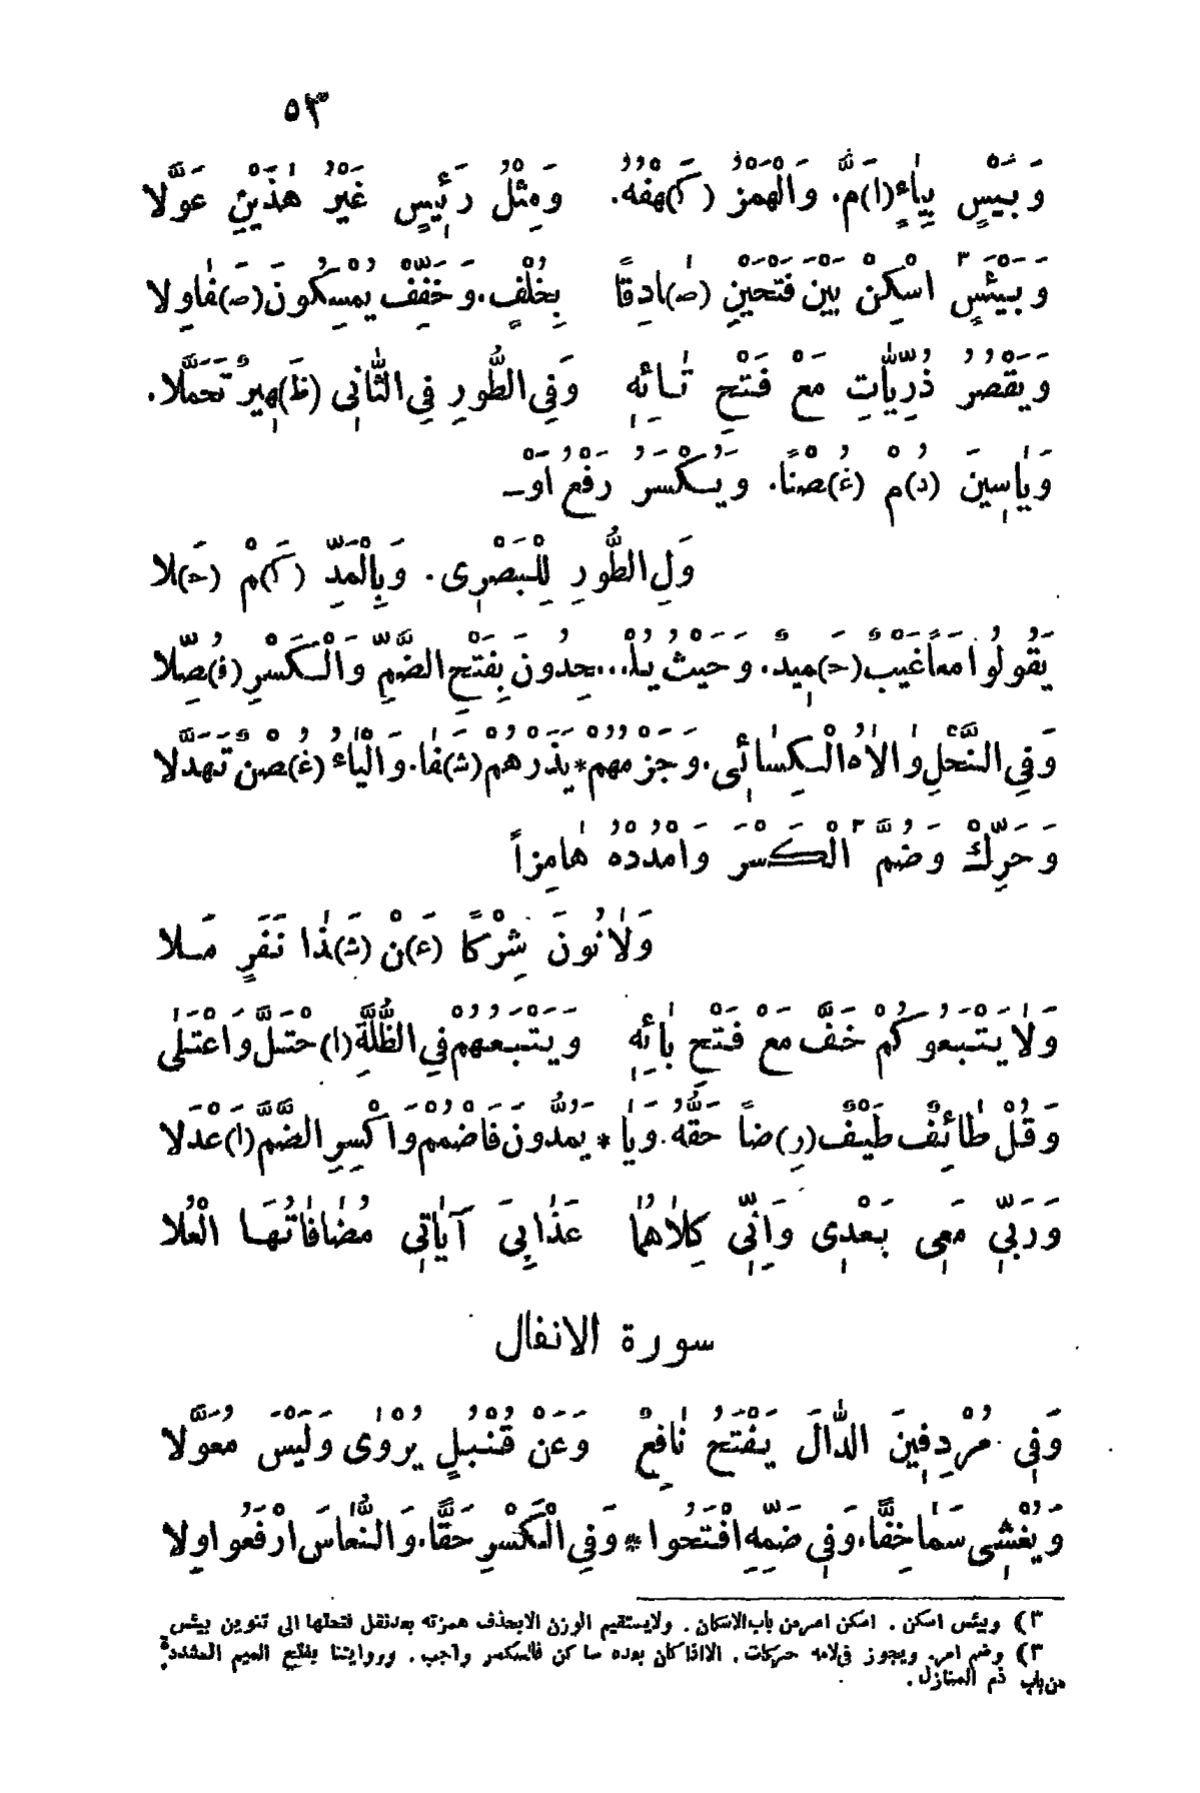 ٥٣
وَبَيْسٍ بِيَاءٍ (ا)مَّ. وَالْهَمْزُ (كَ)هْفُهُ. وَمِثْلُ رَئِيسٍ غَيْرُ هٰذَيْنِ عَوَّلَا
وَبَيْئَسٍ ٣ اسْكِنْ بَيْنَ فَتْحَيْنِ (صَ)ادِقًا بِخُلْفٍ. وَخَفِّفْ يُمْسِكُونَ (صَ)فَاوِلَا
وَيَقْصُرُ ذُرِّيَّاتِ مَعْ فَتْحِ تَائِهِ وَفِي الطُّورِ فِي الثَّانِي (ظَ)هِيرٌ تَحَمَّلَا.
وَيَاسِينَ (دُ)مْ (غُ)صْنًا. وَيُكْسَرُ رَفْعُ أَوْـ
وَلِ الطُّورِ لِلْبَصْرِي. وَبِالْمَدِّ (كَ)مْ (حَ)لَا
يَقُولُوا مَعًا غَيْبٌ (حَ)مِيدٌ. وَحَيْثُ يُلْـ...حِدُونَ بِفَتْحِ الضَّمِّ وَالْكَسْرِ (فُ)صِّلَا
وَفِي النَّحْلِ وَالَاهُ الْكِسَائِي. وَجَزْمُهُمْ * يَذَرْهُمْ (شَ)فَا. وَالْيَاءُ (غُ)صْنٌ تَهَدَّلَا
وَحَرِّكْ وَضُمَّ ٣ الْكَسْرَ وَامْدُدْهُ هَامِزاً
وَلَا نُونَ شِرْكًا (عَ)نْ (شَ)ذَا نَفَرٍ مَلَا
وَلَا يَتْبَعُوكُمْ خَفَّ مَعْ فَتْحِ بَائِهِ وَيَتْبَعُهُمْ فِي الظُّلَّةِ (ا)حْتَلَّ وَاعْتَلَى
وَقُلْ طَائِفٌ طَيْفٌ (رِ)ضاً حَقُّهُ. وَيَا * يَمُدُّونَ فَاضْمُمْ وَاكْسِرِ الضَّمَّ (ا)عْدَلَا
وَرَبِّي مَعِي بَعْدِي وَإِنِّي كِلَاهُمَا عَذَابِيَ آيَاتِي مُضَافَاتُهَا الْعُلَا
سورة الانفال
وَفِي مُرْدِفِينَ الدَّالَ يَفْتَحُ نَافِعٌ وَعَنْ قُنْبُلٍ يُرْوَى وَلَيْسَ مُعَوَّلَا
وَيُغْشِي سَمَا خِفًّا. وَفِي ضَمِّهِ افْتَحُوا * وَفِي الْكَسْرِ حَقًّا. وَالنُّعَاسَ ارْفَعُوا وِلَا
٣) وبيئس اسكن. اسكن امر من باب الاسكان. ولا يستقيم الوزن الا بحذف همزته بعد نقل فتحها الى تنوين بيئس.
٣) وضم امر. ويجوز في لامه حركات. الا اذا كان بعده ساكن فالكسر واجب. وروايتنا بفتح الميم المشددة
من باب ذم المنازل.